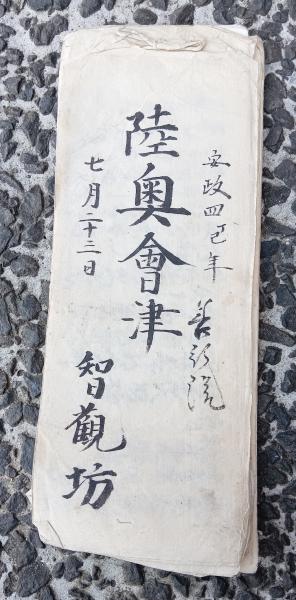 安政四巳年
陸奥會津
七月二十三日
智觀坊